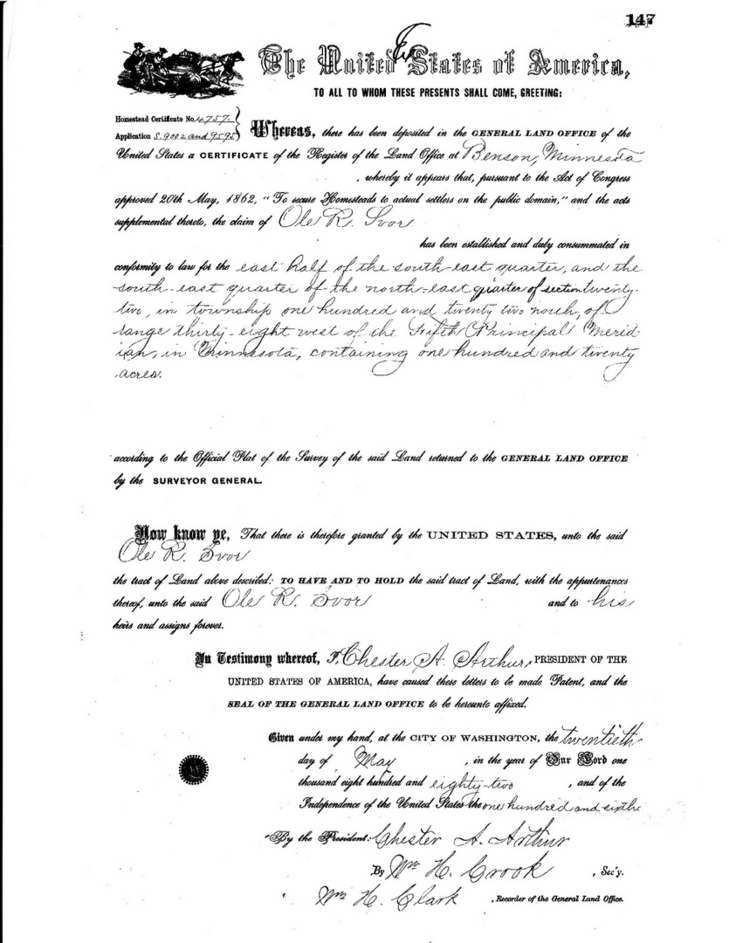 147
The United States of America,
TO ALL TO WHOM THESE PRESENTS SHALL COME, GREETING:
Homestead Certificate No. 4757
Application 8.9002 and 9595
Whereas, there has been deposited in the GENERAL LAND OFFICE of the
United States a CERTIFICATE of the Register of the Land Office at Benson, Minnesota
, whereby it appears that, pursuant to the Act of Congress
approved 20th May, 1862, "To secure Homesteads to actual settlers on the public domain," and the acts
supplemental thereto, the claim of Ole R. Svor
has been established and duly consummated in
conformity to law for the east half of the south-east quarter, and the
south-east quarter of the north-east quarter of section twenty-
two, in township one hundred and twenty two north, of
range thirty-eight west of the Fifth Principal Merid
ian, in Minnesota, containing one hundred and twenty
acres.
according to the Official Plat of the Survey of the said Land returned to the GENERAL LAND OFFICE
by the SURVEYOR GENERAL.
Now know ye, That there is therefore granted by the UNITED STATES, unto the said
Ole R. Svor
the tract of Land above described: TO HAVE AND TO HOLD the said tract of Land, with the appurtenances
thereof, unto the said Ole R. Svor and to his
heirs and assigns forever.
In Testimony whereof, I, Chester A. Arthur, PRESIDENT OF THE
UNITED STATES OF AMERICA, have caused these letters to be made Patent, and the
SEAL OF THE GENERAL LAND OFFICE to be hereunto affixed.
Given under my hand, at the CITY OF WASHINGTON, the twentieth
day of May , in the year of Our Lord one
thousand eight hundred and eighty-two , and of the
Independence of the United States the one hundred and sixth
By the President: Chester A. Arthur
By Wm H. Crook , Sec'y.
Wm H. Clark , Recorder of the General Land Office.